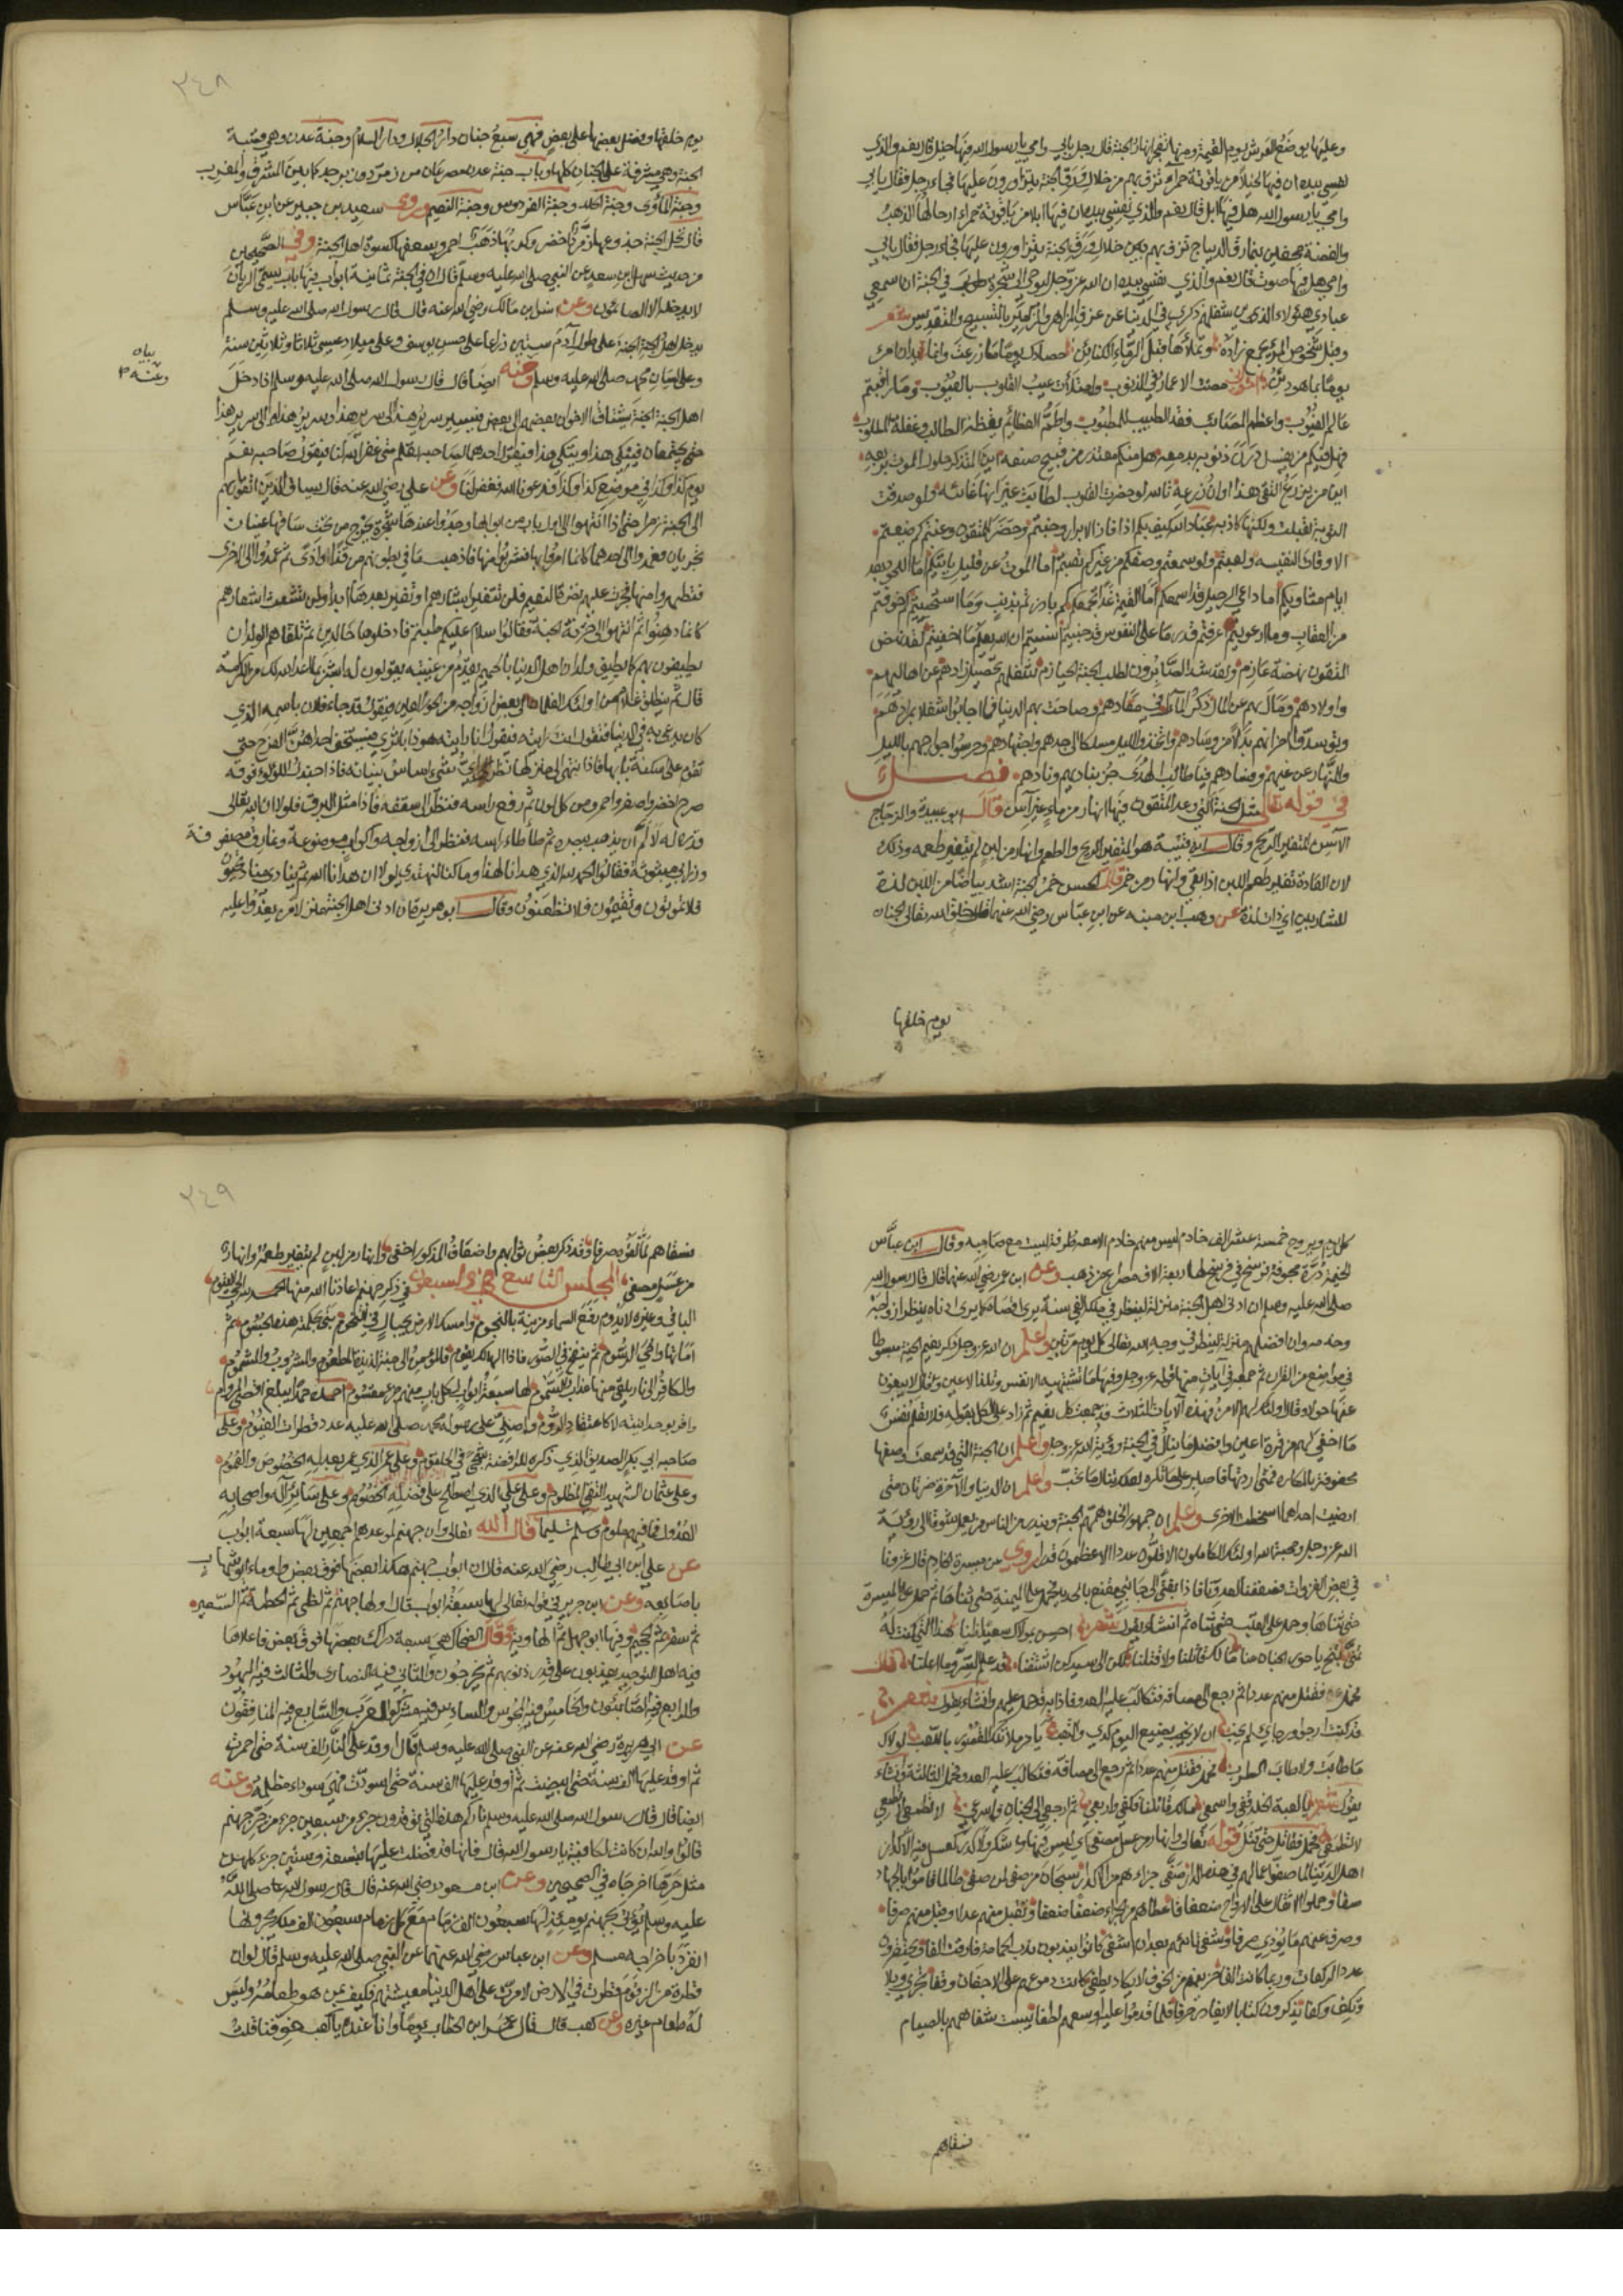 وعليها يوضع العرش يوم القيمة ومنها تفجر انهار الجنة فقال رجل بابي وامي يا رسول الله فيها خيل قال نعم والذي
نفسي بيده ان فيها لخيلا من ياقوتة حمراء تزف بهم من خلال ورق الجنة يتزاورون عليها فجاء رجل فقال بابي
وامي يا رسول الله هل فيها ابل قال نعم والذي نفسي بيده ان فيها ابلا من ياقوتة حمراء رحالها الذهب
والفضة محففين بنمارق الديباج تزف بهم بين خلال ورق الجنة يتزاورون عليها فجاء رجل فقال بابي
وامي هل فيها صوت قال نعم والذي نفسي بيده ان الله عز وجل ليوحي الى شجرة طوبى في الجنة ان سمعي
عبادي هؤلاء الذين شغلهم ذكري في الدنيا عن عزف المزاهر والمزامير بالتسبيح والتقديس شعر
اخواني مضت الاعمار في الذنوب وامتلأت عيب القلوب بالعيوب وما راقبتم
عالم الغيوب واعظم المصائب فقد الطبيب للمطبوب واطم العظائم يقظة الطالب وغفلة المطلوب
فهل فيكم من يغسل درن ذنوبه بدمعه هل منكم معتذر من قبيح صنعه اين المتذكر حلول الموت بربعه
اين من يزرع التقى هذا اوان زرعه تاسه لو حضرت القلوب لطابت غير انها غائبه ولو صدقت
التوبة لقبلت ولكنها كاذبه عباد الله كيف بكم اذا فاز الابرار وخبتم وحضر المتقون وغبتم
ايام مثاويكم اما داعي الرحيل قد اسمعكم اما القيمة غدا تجمعكم
من العقاب وما ارعويتم عرفتم قدر ما على النفوس قد جنيتم انسيتم ان الله يعلم ما اخفيتم لقد نهض
المتقون نهضة عازم ولقد شد الصابرون لطلب الجنة الحيازم شغلهم تحصيل زادهم عن اهاليهم
واولادهم ومال بهم عن المال ذكر المآل في معادهم وصاحت بهم الدنيا فما اجابوا شغلا بمرادهم
وتوسدوا احزانهم بدلا من وسادهم واتخذوا الليل مسلكا الى جدهم واجتهادهم وحرسوا جوارحهم بالليل
والنهار عن غيهم وفسادهم فيا طالب الهدى جز بناديهم ونادهم فصل
في قوله تعالى مثل الجنة التي وعد المتقون فيها انهار من ماء غير آسن قال ابو عبيدة والزجاج
الآسن المتغير الريح وقال ابن قتيبة هو المتغير الريح والطعم وانهار من لبن لم يتغير طعمه وذلك
لان العادة تغير طعم اللبن اذا بقي وانهار من خمر قال الحسن خمر الجنة اشد بياضا من اللبن لذة
للشاربين اي ذات لذة عن وهب ابن منبه عن ابن عباس رضي الله عنهما قال خلق الله تعالى الجنان
يوم خلقها
٣٤٨
يوم خلقها وفضل بعضها على بعض فهي سبع جنان دار الجلال ودار السلام وجنة عدن وهي قصبة
الجنة وهي مشرفة على الجنان كلها وباب جنة عدن مصرعان من زمرد وزبرجد كما بين المشرق والمغرب
وجنة المأوى وجنة الخلد وجنة الفردوس وجنة النعيم وروى سعيد بن جبير عن ابن عباس
قال نخل الجنة جذوعها زمرد اخضر وكربها ذهب احمر وسعفها كسوة اهل الجنة وفي الصحيحين
من حديث سهل ابن سعد عن النبي صلى الله عليه وسلم قال ان في الجنة ثمانية ابواب فيها باب يسمى الريان
لا يدخله الا الصائمون وعن انس ابن مالك رضي الله عنه قال قال رسول الله صلى الله عليه وسلم
يدخل اهل الجنة الجنة على طول آدم ستين ذراعا على حسن يوسف وعلى ميلاد عيسى ثلاثا وثلاثين سنة
وعلى لسان محمد صلى الله عليه وسلم وعنه ايضا قال قال رسول الله صلى الله عليه وسلم اذا دخل
بيان
وعنه
اهل الجنة الجنة يشتاق الاخوان بعضهم الى بعض فيسير سرير هذا الى سرير هذا وسرير هذا الى سرير هذا
حتى يجتمعان فيتكي هذا ويتكي هذا فيقول احدهما لصاحبه تعلم متى غفر الله لنا فيقول صاحبه نعم
يوم كذا وكذا في موضع كذا وكذا فدعونا الله فغفر لنا وعن علي رضي الله عنه قال يساق الذين اتقوا ربهم
الى الجنة زمرا حتى اذا انتهوا الى اول باب من ابوابها وجدوا عندها شجرة يخرج من تحت ساقها عينان
تجريان فعمدوا الى احدهما كانما امروا بها فشربوا منها فاذهبت ما في بطونهم من قذى او اذى ثم عمدوا الى الاخرى
فتطهروا منها فجرت عليهم نضرة النعيم فلن تتغير ابشارهم او تغير بعدها ابدا ولن تشعث اشعارهم
كانما دهنوا ثم انتهوا الى خزنة الجنة فقالوا سلام عليكم طبتم فادخلوها خالدين ثم تلقاهم الولدان
يطيفون بهم كما يطيف ولدان اهل الدنيا بالحميم يقدم من غيبته يقولون له ابشر بما اعد الله لك من الكرامة
قال ثم ينطلق غلام من اولئك الغلمان الى بعض ازواجه من الحور العين فيقول قد جاء فلان باسمه الذي
كان يدعى به في الدنيا فتقول انت رايته فيقول انا رايته هو ذا باثري فيستخف احداهن الفرح حتى
تقوم على اسكفة بابها فاذا انتهى الى منزلها نظر اي شي اساس بنيانه فاذا جندل اللؤلؤ فوقه
صرح اخضر واصفر واحمر ومن كل لون ثم رفع راسه فنظر الى سقفه فاذا مثل البرق فلولا ان الله تعالى
قدره له لالم ان يذهب ببصره ثم طأطأ راسه فنظر الى ازواجه واكواب موضوعة ونمارق مصفوفة
وزرابي مبثوثة فقالوا الحمد لله الذي هدانا لهذا وما كنا لنهتدي لولا ان هدانا الله ثم ينادي مناد تحيون
فلا تموتون وتقيمون فلا تظعنون وقال ابو هريرة ان ادنى اهل الجنة منزلا من يغدوا عليه
كل يوم ويروح خمسة عشر الف خادم ليس منهم خادم الا معه طرفة ليست مع صاحبه وقال ابن عباس
الخيمة درة مجوفة فرسخ في فرسخ لها اربعة الاف مصراع من ذهب وعن ابن عمر رضي الله عنهما قال قال رسول الله
صلى الله عليه وسلم ان ادنى اهل الجنة منزلة لينظر في ملكه الفي سنة يرى اقصاه كما يرى ادناه ينظر ازواجه
وخدمه وان افضلهم منزلة لينظر في وجه الله تعالى كل يوم مرتين واعلم ان الله عز وجل ذكر نعيم الجنة مبسوطا
في مواضع من القران ثم جمعه في آيات منها قوله عز وجل وفيها ما تشتهيه الانفس وتلذ الاعين وقال لا يبغون
عنها حولا وقال اولئك لهم الامن فهذه الآيات الثلاث قد جمعت كل نعيم ثم زاد على الكل بقوله فلا تعلم نفس
ما اخفي لهم من قرة اعين وافضل ما ينال في الجنة رؤية الله عز وجل واعلم ان الجنة التي قد سمعت وصفها
محفوفة بالمكاره فمتى اردتها فاصبر على ما تكره لعلك تنال ما تحب واعلم ان الدنيا والآخرة ضرتان متى
ارضيت احداهما اسخطت الاخرى واعلم ان جمهور الخلق همتهم الجنة ويندر من الناس من يعمل شوقا الى رؤية
الله عز وجل ومحبة لله اولئك الكاملون الاقلون عددا الاعظمون قدرا روي عن ميسرة الخادم قال غزونا
في بعض الغزوات فصففنا العدو فاذا بفتى الى جانبي مقنع بالحديد فحمل على الميمنة حتى ثناها ثم حمل على الميسرة
حتى ثناها وحمل على القلب حتى ثناه ثم انشاء يقول شعر احسن بمولاك سعيد ظنا هذا الذي كنت له
تمنى تنح يا حور الجنان عنا مالك قاتلنا ولا قتلنا لكن الى سيدكن اشتقنا قد علم السر وما اعلنا قال
فحمل فقتل منهم عددا ثم رجع الى مصافه فتكالب عليه العدو فاذا به قد حمل عليهم وانشاء يقول شعر
قد كنت ارجوا ورجائي لم يخب ان لا يضيع اليوم كدي والتعب يا من ملا تلك القصور باللعب لولاك
ما طابت ولا طاب الطرب فحمل فقتل منهم عددا ثم رجع الى مصافه فتكالب عليه العدو فحمل الثالثة وانشاء
يقول شعر يا لعبة الخلد قفي واسمعي مالك قاتلنا فكفي واربعي ثم ارجعي الى الجنان واسرعي لا تطمعي لا تطمعي
لا تطمعي فحمل فقاتل حتى قتل قوله تعالى وانهار من عسل مصفى اي ليس فيها عكر ولا كدر
صفا وحملوا الاثقال على الارواح ضعفا فاعطاهم من الجزاء ضعفا ضعفا وتقبل منهم عدلا وقبل منهم صرفا
نسقاهم
٣٤٩
نسقاهم وقد ذكر بعض ثوابهم واضعاف المذكور اخفى وانهار من لبن لم يتغير طعمه وانهار
من عسل مصفى المجلس التاسع والسبعون في ذكر جهنم اعاذنا الله منها الحمد لله الحي القيوم
الباقي وغيره لا يدوم رفع السماء مزينة بالنجوم وامسك الارض بجبال في التخوم بنى بحكمته هذه الجسوم ثم
اماتها ومحى الرسوم ثم ينفخ في الصور فاذا الهالك يقوم فالمؤمن الى جنة لذيذة المطعوم والمشروب والمشموم
والكافر الى نار يلقى منها عذاب السموم لها سبعة ابواب لكل باب منهم جزء مقسوم احمده حمدا يبلغ اقصى المروم
واقر بوحدانيته لا كاعتقاد الروم واصلي على رسوله محمد صلى الله عليه عدد قطرات الغيوم وعلى
صاحبه ابي بكر الصديق الذي ذكره للرافضة شجى في الحلقوم وعلى عمر الذي عم بعدله الخصوص والعموم
وعلى عثمان الشهيد التقي المظلوم وعلى علي الذي اصطلح على فضله الخصوم وعلى سائر آله واصحابه
العدول فما فيهم ملوم وسلم تسليما قال الله تعالى وان جهنم لموعدهم اجمعين لها سبعة ابواب
عن علي ابن ابي طالب رضي الله عنه قال ان ابواب جهنم هكذا بعضها فوق بعض
باصابعه وعن ابن جريج في قوله تعالى لها سبعة ابواب قال اولها جهنم ثم لظى ثم الحطمة ثم السعير
ثم سقر ثم الجحيم وفيها ابو جهل ثم الهاوية وقال الضحاك هي سبعة دراك بعضها فوق بعض فاعلاها
فيه اهل التوحيد يعذبون على قدر ذنوبهم ثم يخرجون والثاني فيه النصارى والثالث فيه اليهود
والرابع فيه الصابئون والخامس فيه المجوس والسادس فيه مشركوا العرب والسابع فيه المنافقون
عن ابي هريرة رضي الله عنه عن النبي صلى الله عليه وسلم قال اوقد على النار الف سنة حتى احمرت
ثم اوقد عليها الف سنة حتى ابيضت ثم اوقد عليها الف سنة حتى اسودت فهي سوداء مظلمة وعنه
ايضا قال قال رسول الله صلى الله عليه وسلم ناركم هذه التي توقدون جزء من سبعين جزء من حر جهنم
قالوا والله ان كانت لكافية يا رسول الله قال فانها قد فضلت عليها بتسعة وستين جزء كلهن
مثل حرها اخرجاه في الصحيحين وعن ابن مسعود رضي الله عنه قال قال رسول الله صلى الله
عليه وسلم يؤتى بجهنم يومئذ لها سبعون الف زمام مع كل زمام سبعون الف ملك يجرونها
انفرد باخراجه مسلم وعن ابن عباس رضي الله عنهما عن النبي صلى الله عليه وسلم قال لو ان
قطرة من الزقوم قطرت في الارض لامرت على اهل الدنيا معيشتهم فكيف بمن هو طعامه وليس
له طعام غيره وعن كعب قال قال عمر ابن الخطاب يوما وانا عنده يا كعب خوفنا قلت